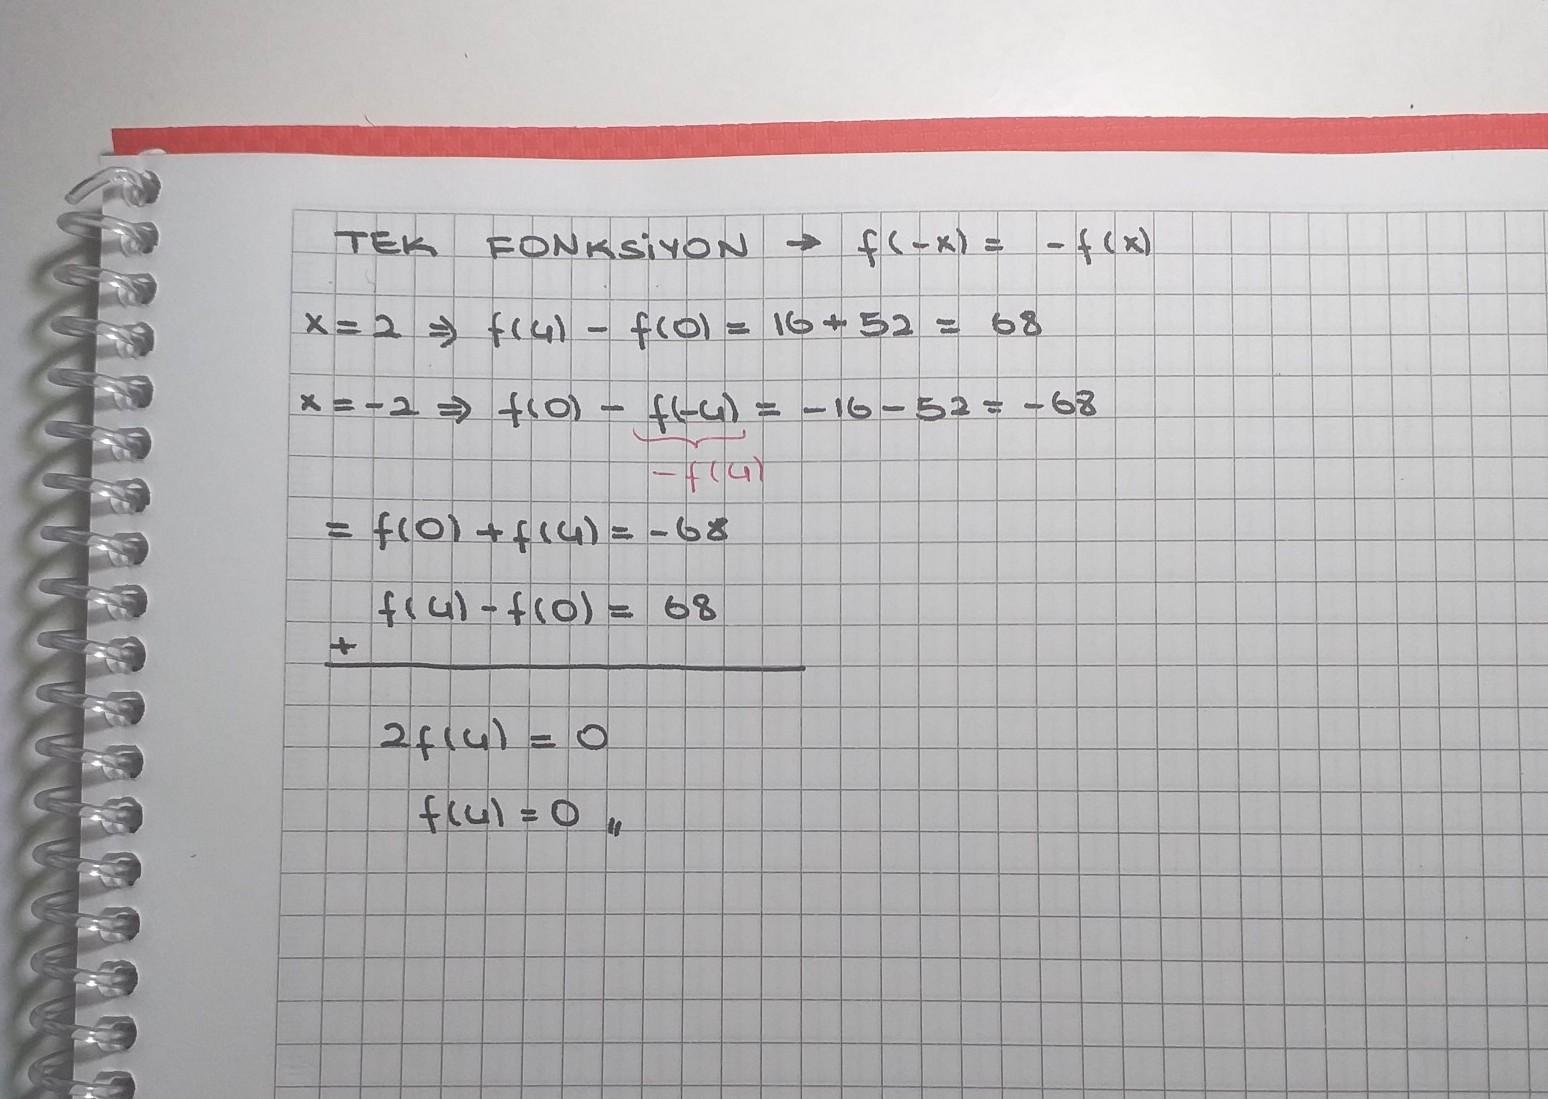 TEK FONKSİYON → f(-x) = -f(x)
x = 2 ⇒ f(4) - f(0) = 16 + 52 = 68
x = -2 ⇒ f(0) - f(-4) = -16 - 52 = -68
-f(4)
= f(0) + f(4) = -68
f(4) - f(0) = 68
+
2f(4) = 0
f(4) = 0 ,,